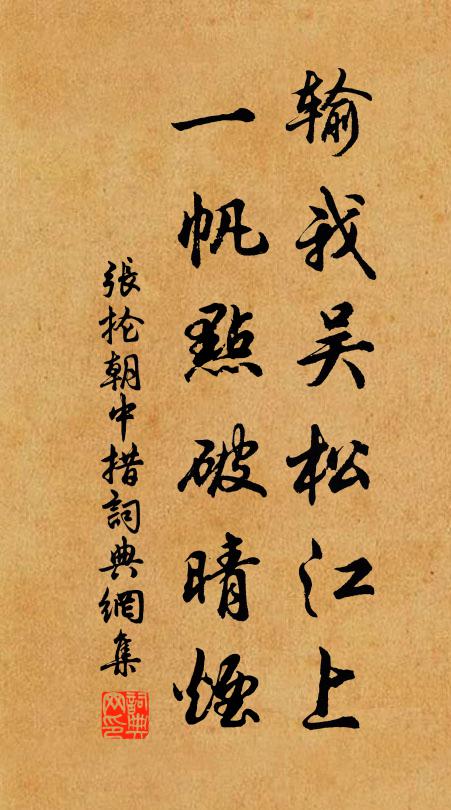 输我吴松江上
一帆點破晴煙
張抡朝中措詞典網集
詞典网印